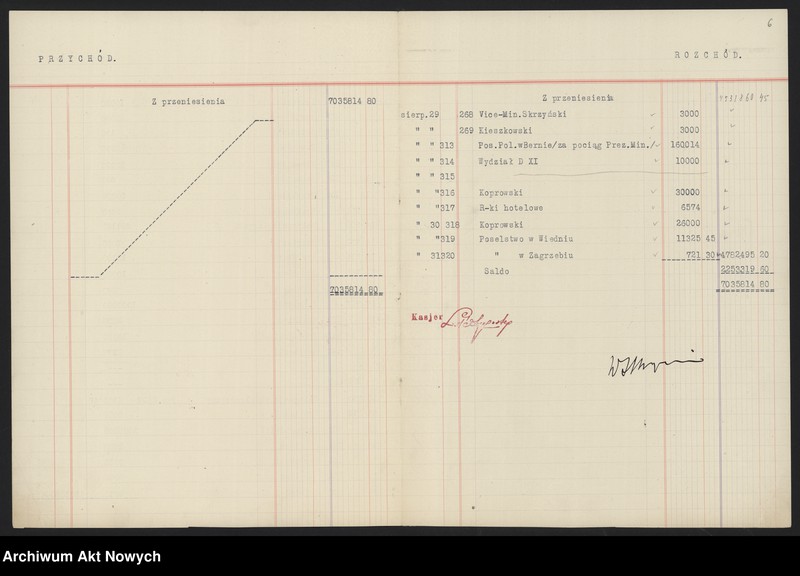 6
PRZYCHÓD.
Z przeniesienia 7035814 80
7035814 80
ROZCHÓD.
Z przeniesienia
sierp. 29 268 Vice-Min.Skrzyński 3000
" " 269 Kieszkowski 3000
" " 313 Pos.Pol.wBernie/za pociąg Prez.Min./ 160014
" " 314 Wydział D XI 10000
" " 315
" "316 Koprowski 30000
" "317 R-ki hotelowe 6574
" 30 318 Koprowski 26000
" "319 Poselstwo w Wiedniu 11325 45
" 31320 " w Zagrzebiu 721 30 4782495 20
Saldo 2253319 60
7035814 80
Kasjer
Archiwum Akt Nowych